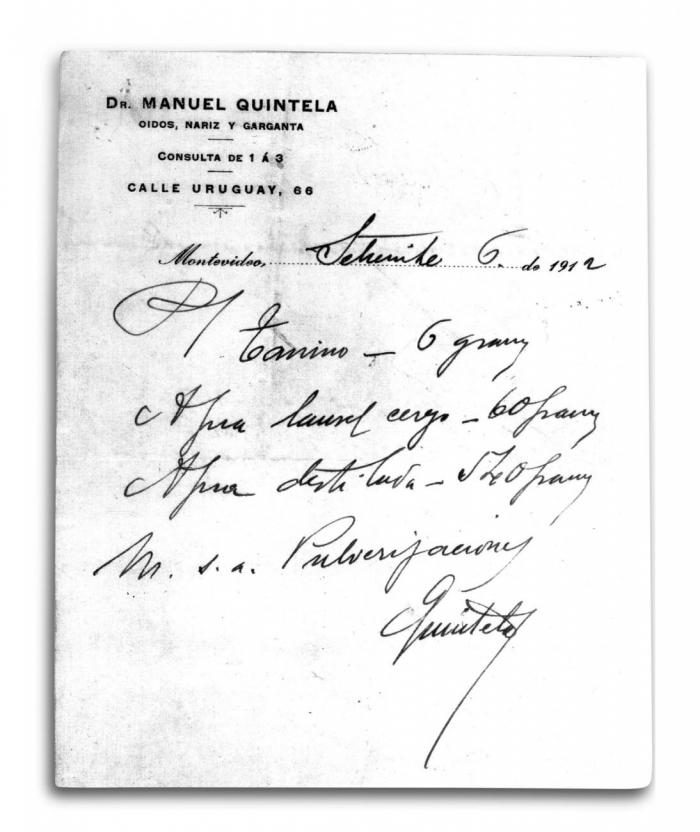 DR. MANUEL QUINTELA
OIDOS, NARIZ Y GARGANTA
CONSULTA DE 1 Á 3
CALLE URUGUAY, 66
Montevideo, Setiembre 6 de 1912
Tanino — 6 gramos
Agua laurel cerezo — 60 gramos
Agua destilada — 540 gramos
M. s. a. Pulverizaciones
Quintela